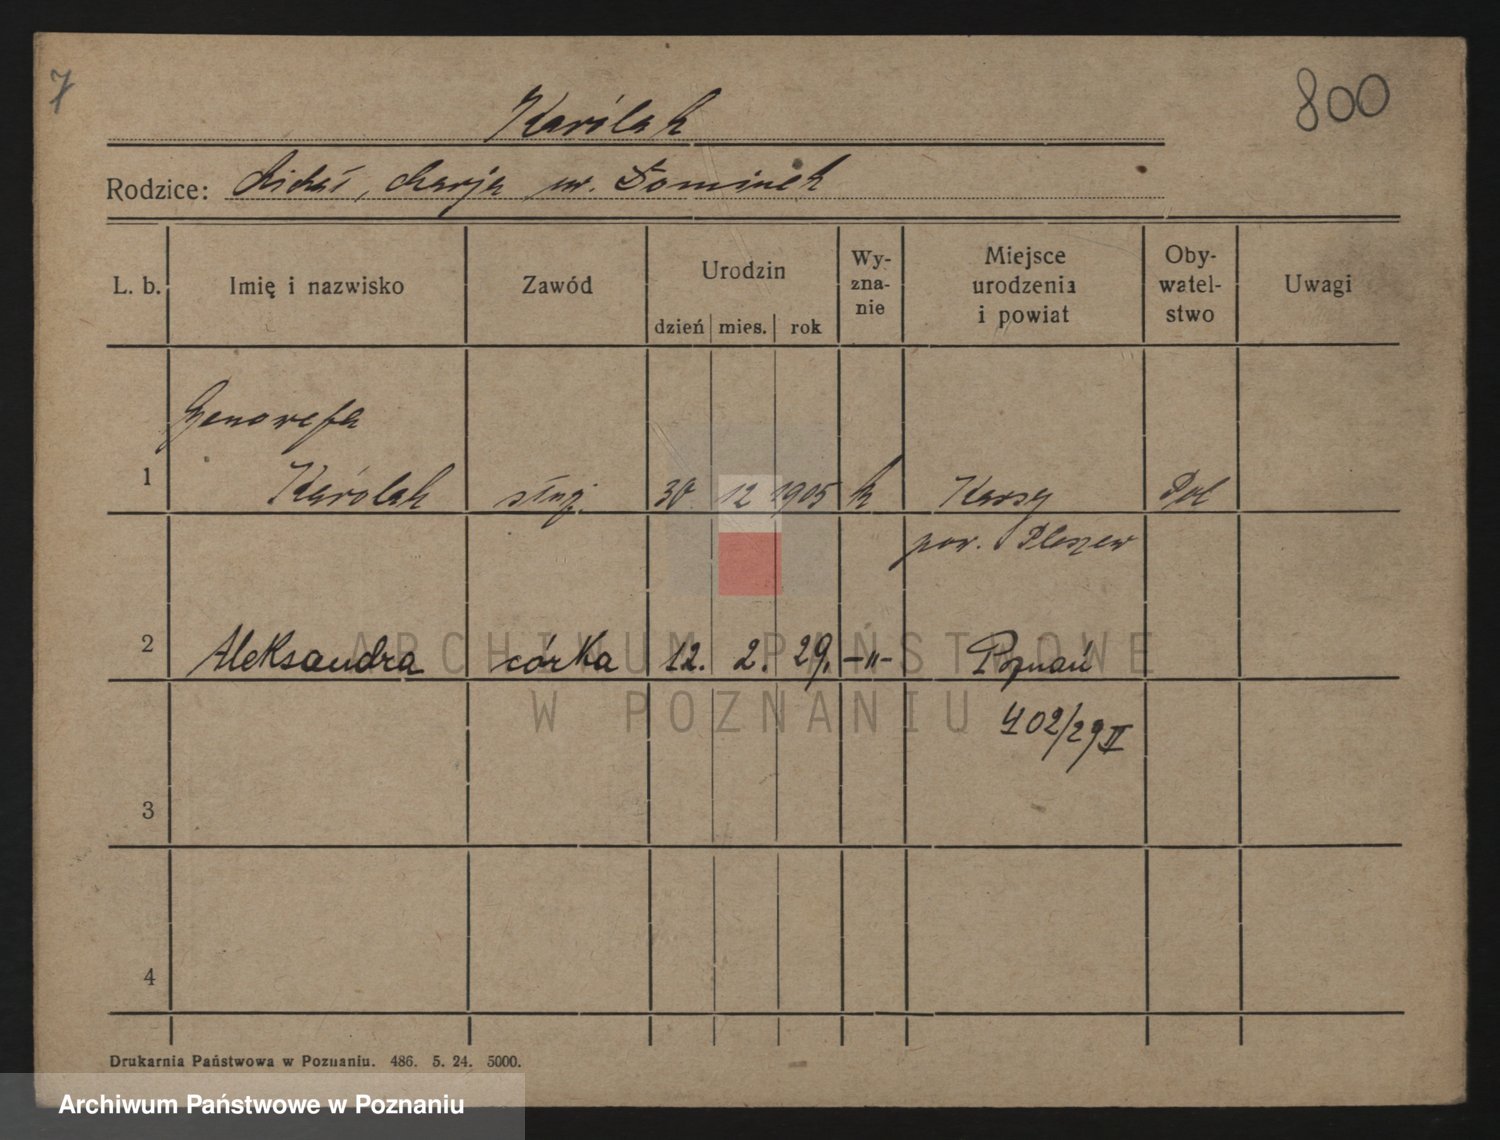 7
800
Karólak
Rodzice: Michał, Marja ur. Dominek
L. b.
Imię i nazwisko
Zawód
Urodzin
dzień mies. rok
Wy-
zna-
nie
Miejsce
urodzenia
i powiat
Oby-
watel-
stwo
Uwagi
Genowefa
1 Karólak służ. 30. 12 1905 k Karsy Pol
pow. Pleszew
2 Aleksandra córka 12. 2. 29. -"- Poznań
402/29 II
3
4
ARCHIWUM PAŃSTWOWE
W POZNANIU
Drukarnia Państwowa w Poznaniu. 486. 5. 24. 5000.
Archiwum Państwowe w Poznaniu